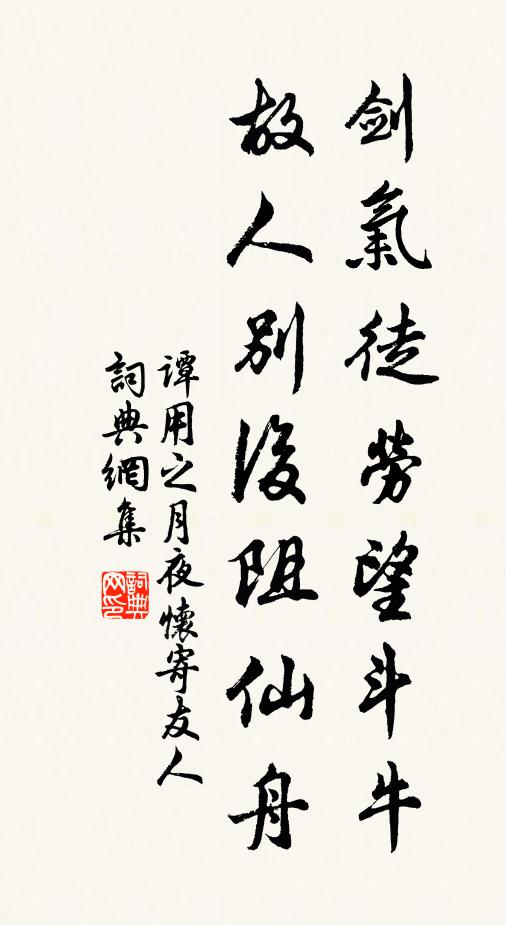 劍氣徒勞望斗牛
故人別後阻仙舟
譚用之月夜懷寄友人
詞典網集
詞典网印